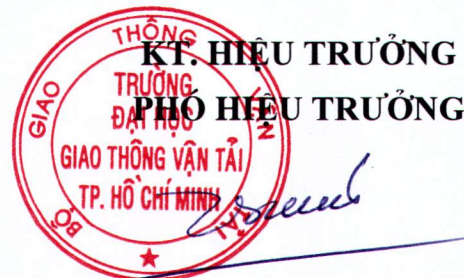 KT. HIỆU TRƯỞNG
PHÓ HIỆU TRƯỞNG
BỘ GIAO THÔNG VẬN TẢI
TRƯỜNG
ĐẠI HỌC
GIAO THÔNG VẬN TẢI
TP. HỒ CHÍ MINH